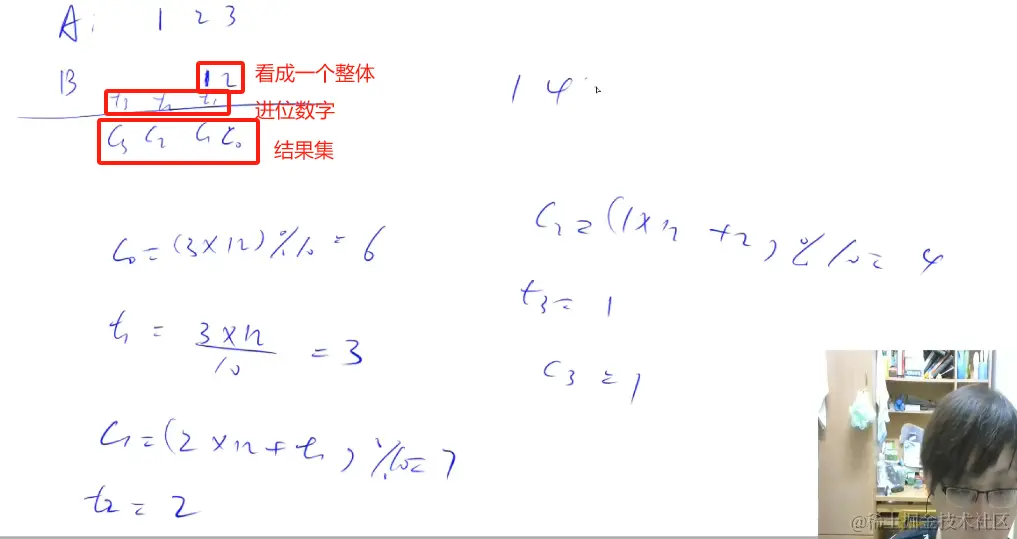 A: 1 2 3
B 12 看成一个整体
t3 t2 t1 进位数字
C3 C2 C1 C0 结果集
1 4
C0=(3×12)%10=6
t1 = 3×12/10 = 3
C1=(2×12+t1)%10=7
t2=2
C2=(1×12+2)%10=4
t3=1
C3=1
@稀土掘金技术社区